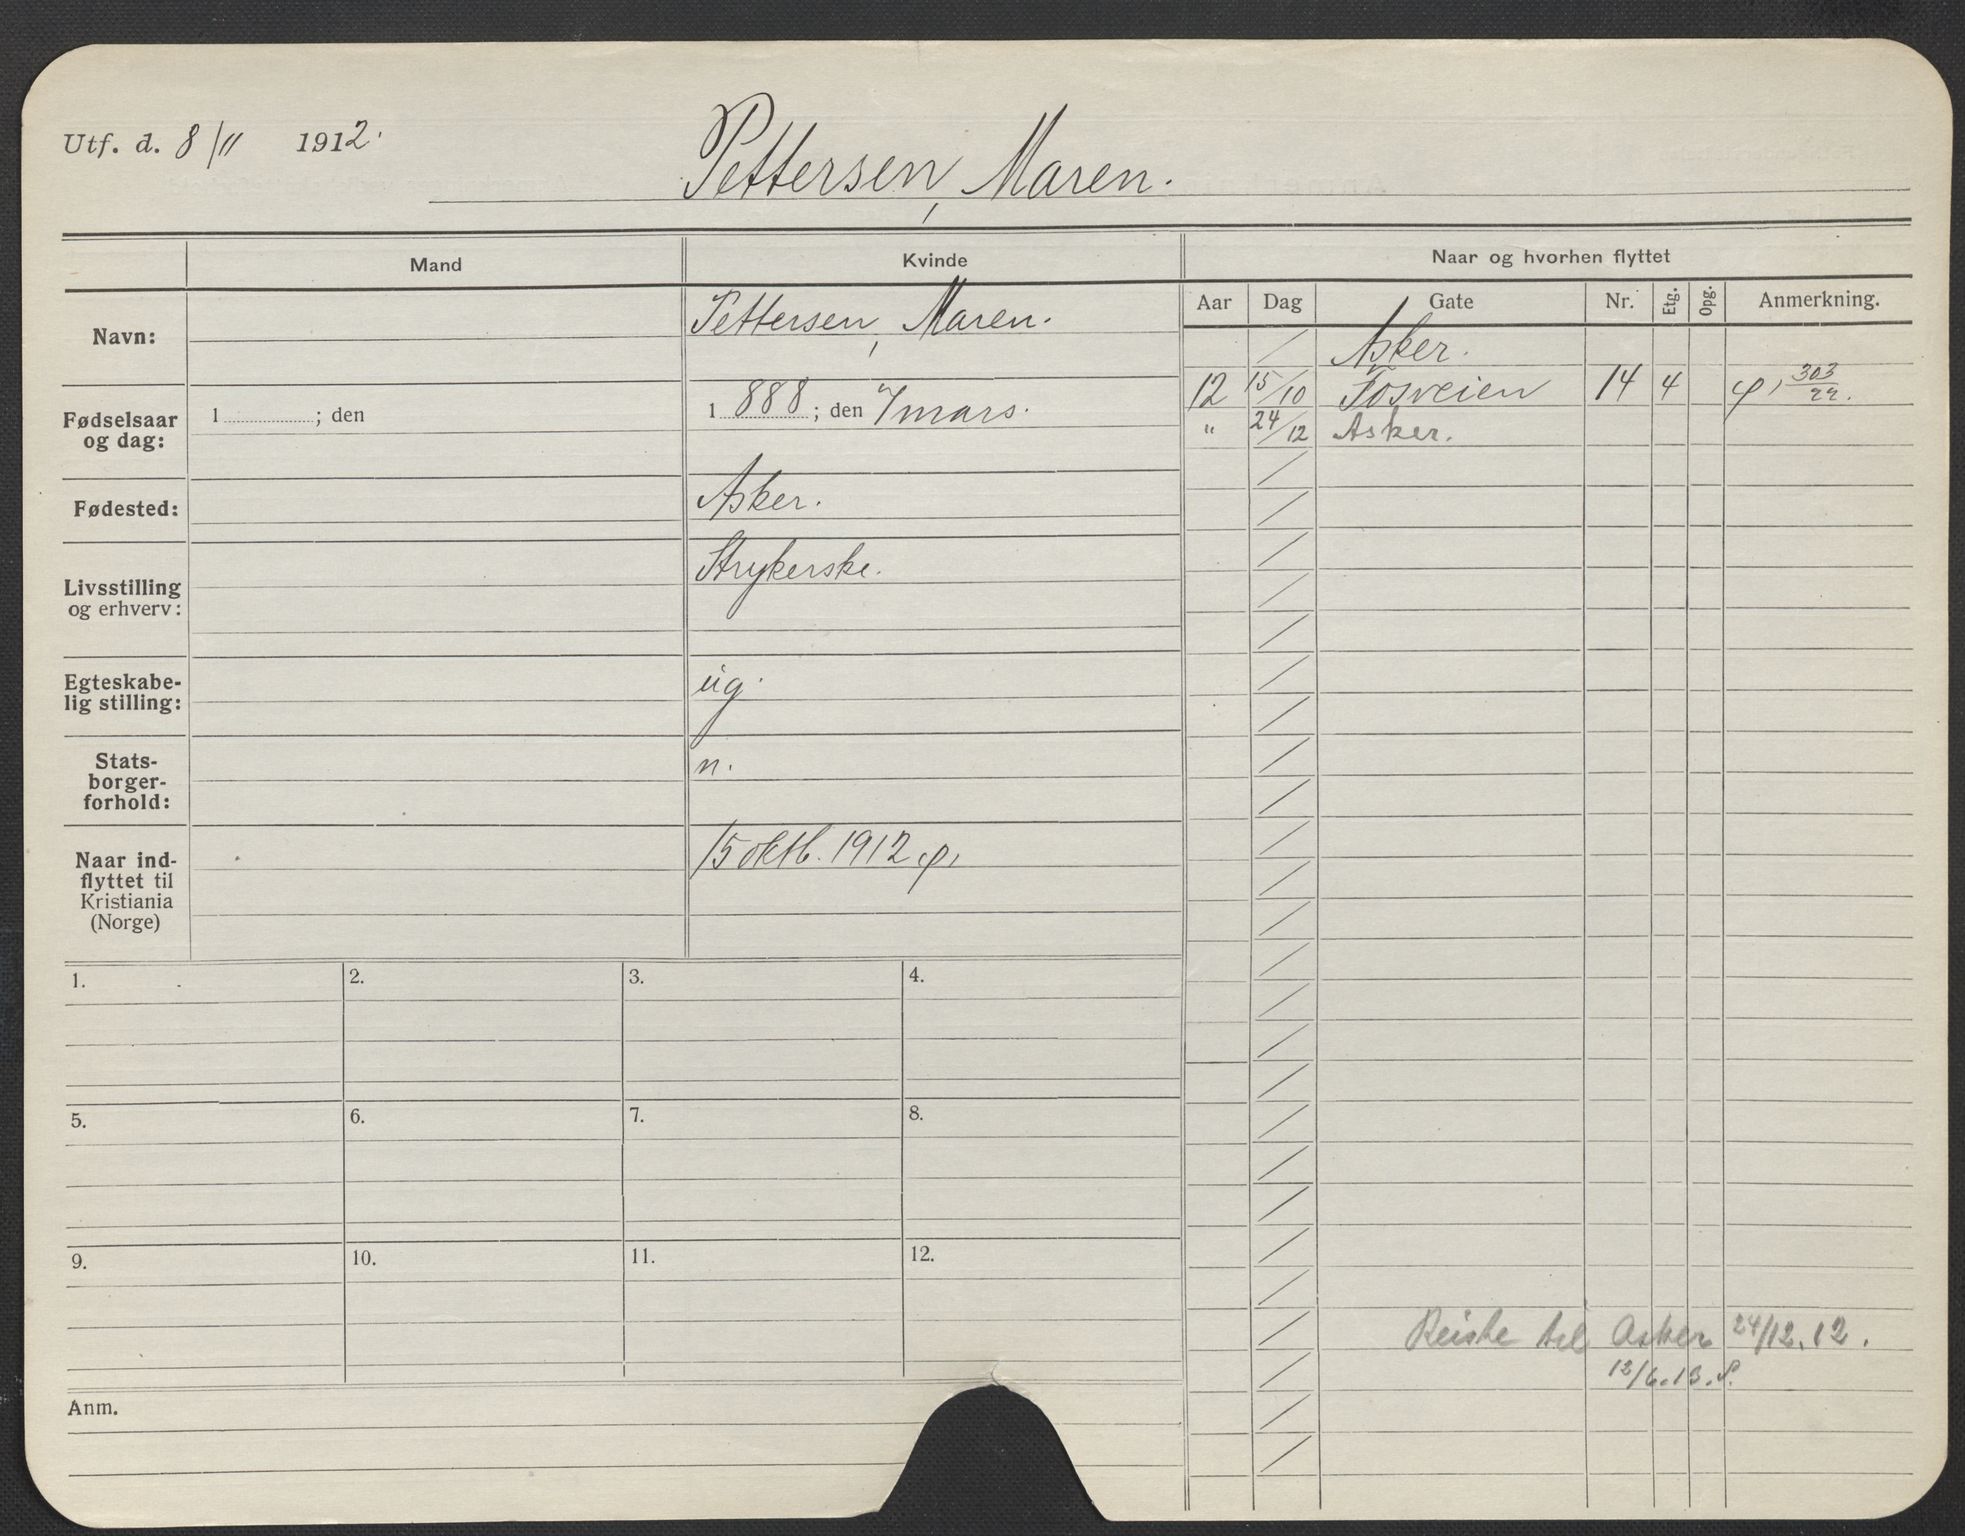 Utf. d. 8/11 1912.
Pettersen, Maren.
Mand
Kvinde
Naar og hvorhen flyttet
Navn:
Pettersen, Maren.
Fødselsaar
og dag:
1 ............ ; den
1 888 ; den 7 mars.
Fødested:
Asker.
Livsstilling
og erhverv:
Strykerske.
Egteskabe-
lig stilling:
ug.
Stats-
borger-
forhold:
n.
Naar ind-
flyttet til
Kristiania
(Norge)
15 oktb. 1912
Aar Dag Gate Nr. Etg. Opg. Anmerkning.
Asker.
12 15/10 Tosveien 14 4 303/22.
" 24/12 Asker.
1.
2.
3.
4.
5.
6.
7.
8.
9.
10.
11.
12.
Reiste til Asker 24/12.12.
12/6.13.
Anm.